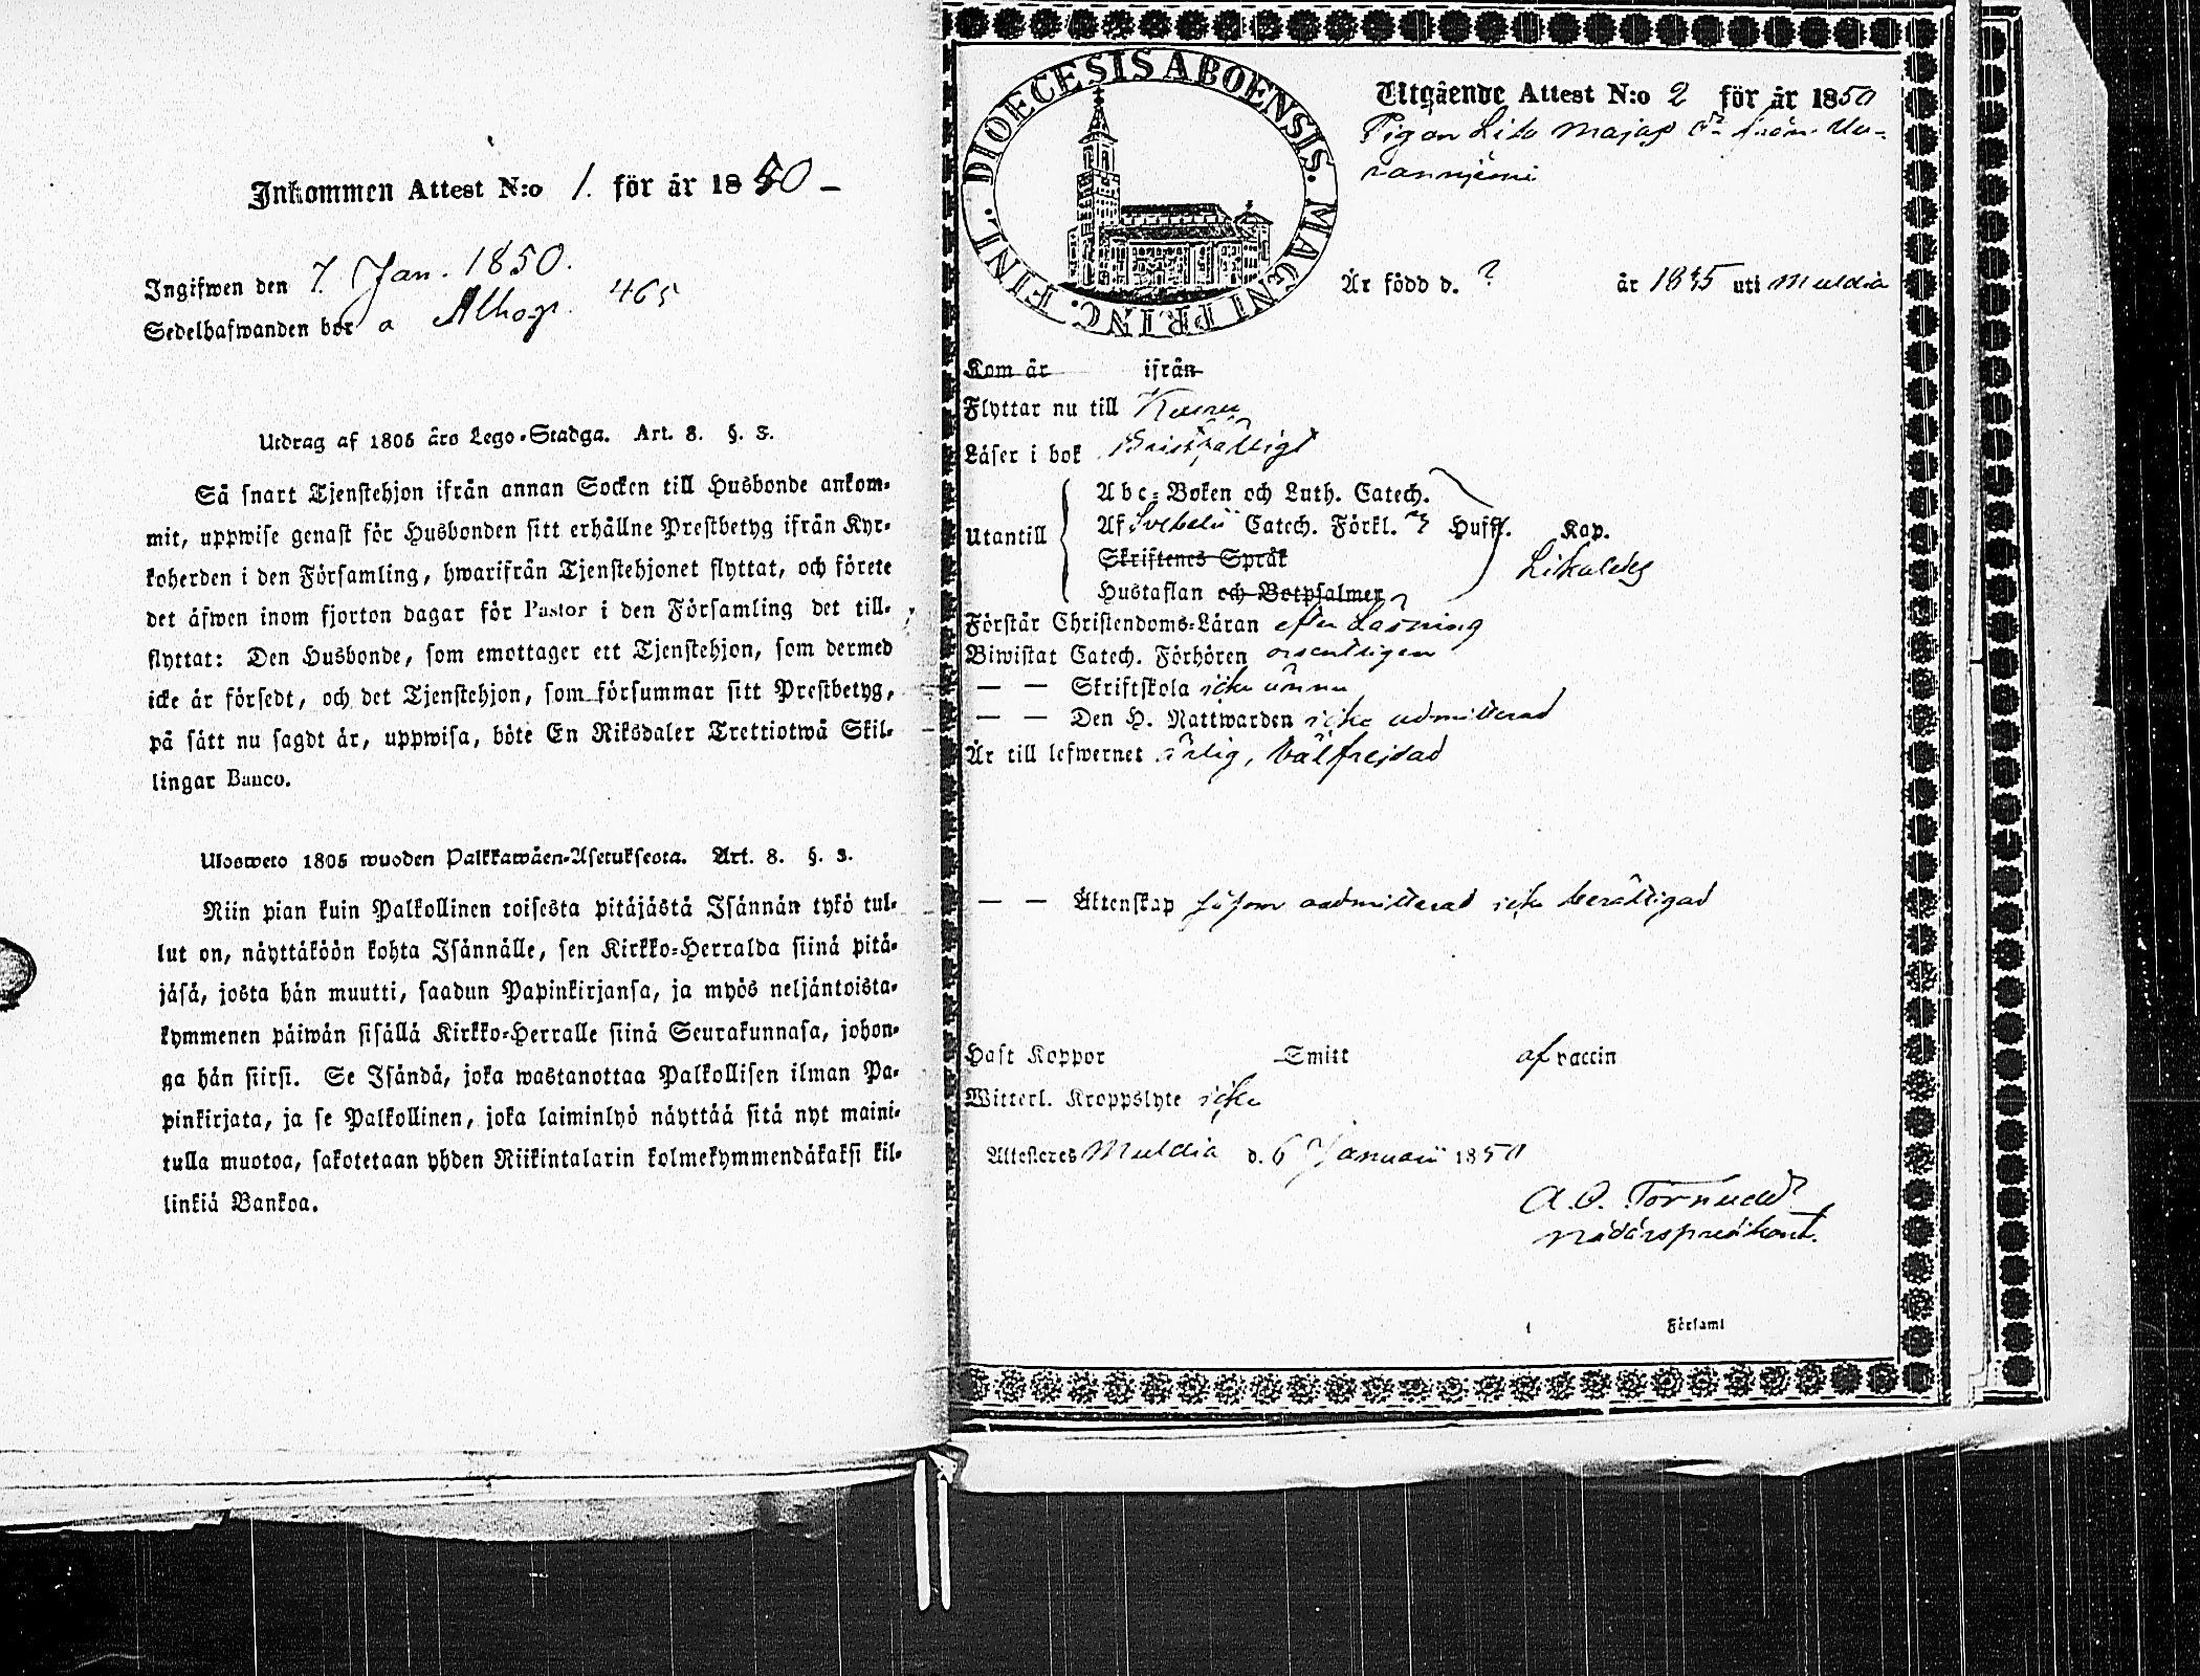 Inkommen Attest N:o 1. för år 1850 –
Ingifwen den 7. Jan. 1850.
Sedelhafwanden bor a Alhop. 465
Utdrag af 1805 års Lego-Stadga. Art. 8. §. 3.
Så snart Tjenstehjon ifrån annan Socken till Husbonde ankom-
mit, uppwise genast för Husbonden sitt erhållne Prestbetyg ifrån Kyr-
koherden i den Församling, hwarifrån Tjenstehjonet flyttat, och förete
det äfwen inom fjorton dagar för Pastor i den Församling det till-
flyttat: Den Husbonde, som emottager ett Tjenstehjon, som dermed
icke är försedt, och det Tjenstehjon, som försummar sitt Prestbetyg,
på sätt nu sagdt är, uppwisa, böte En Riksdaler Trettiotwå Skil-
lingar Banco.
Ulosweto 1805 wuoden Palkkawäen-Asetuksesta. Art. 8. §. 3.
Niin pian kuin Palkollinen toisesta pitäjästä Isännän tykö tul-
lut on, näyttäköön kohta Isännälle, sen Kirkko-Herralda siinä pitä-
jäsä, josta hän muutti, saadun Papinkirjansa, ja myös neljäntoista-
kymmenen päiwän sisällä Kirkko-Herralle siinä Seurakunnasa, johon-
ga hän siirsi. Se Isändä, joka wastanottaa Palkollisen ilman Pa-
pinkirjata, ja se Palkollinen, joka laiminlyö näyttää sitä nyt maini-
tulla muotoa, sakotetaan yhden Riikintalarin kolmekymmendäkaksi kil-
linkiä Bankoa.
DIOECESIS ABOENSIS. MAGNI PRINC. FINL.
Utgående Attest N:o 2 för år 1850
Pigan Lisa Majas dr från Va-
ranniemi
Är född d. ? år 1835 uti Muldia
Kom år ifrån
Flyttar nu till Keuru
Läser i bok Bristfälligt
Utantill
Abc-Boken och Luth. Catech.
Af Svebelii Catech. Förkl. 3 Hufst. Kap.
Skriftenes Språk
Hustaflan och Botpsalmer
Likaledes
Förstår Christendoms-Läran efter Läsning
Biwistat Catech. Förhören ordentligen
— — Skriftskola icke ännu
— — Den H. Nattwarden icke admitterad
Är till lefwernet ärlig, välfrejdad
— — Äktenskap såsom oadmitterad icke berättigad
Haft Koppor Smitt af vaccin
Witterl. Kroppslyte icke
Attesteres Muldia d. 6 Januarii 1850
A. O. Törnudd
nådårspredikant.
Församl